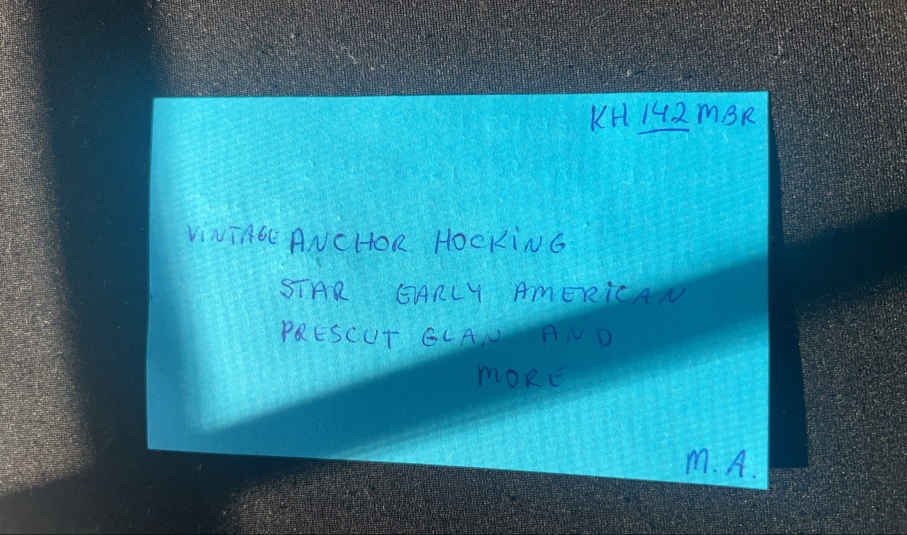 KH 142 MBR
VINTAGE ANCHOR HOCKING
STAR EARLY AMERICAN
PRESCUT AND
MORE
M. A.